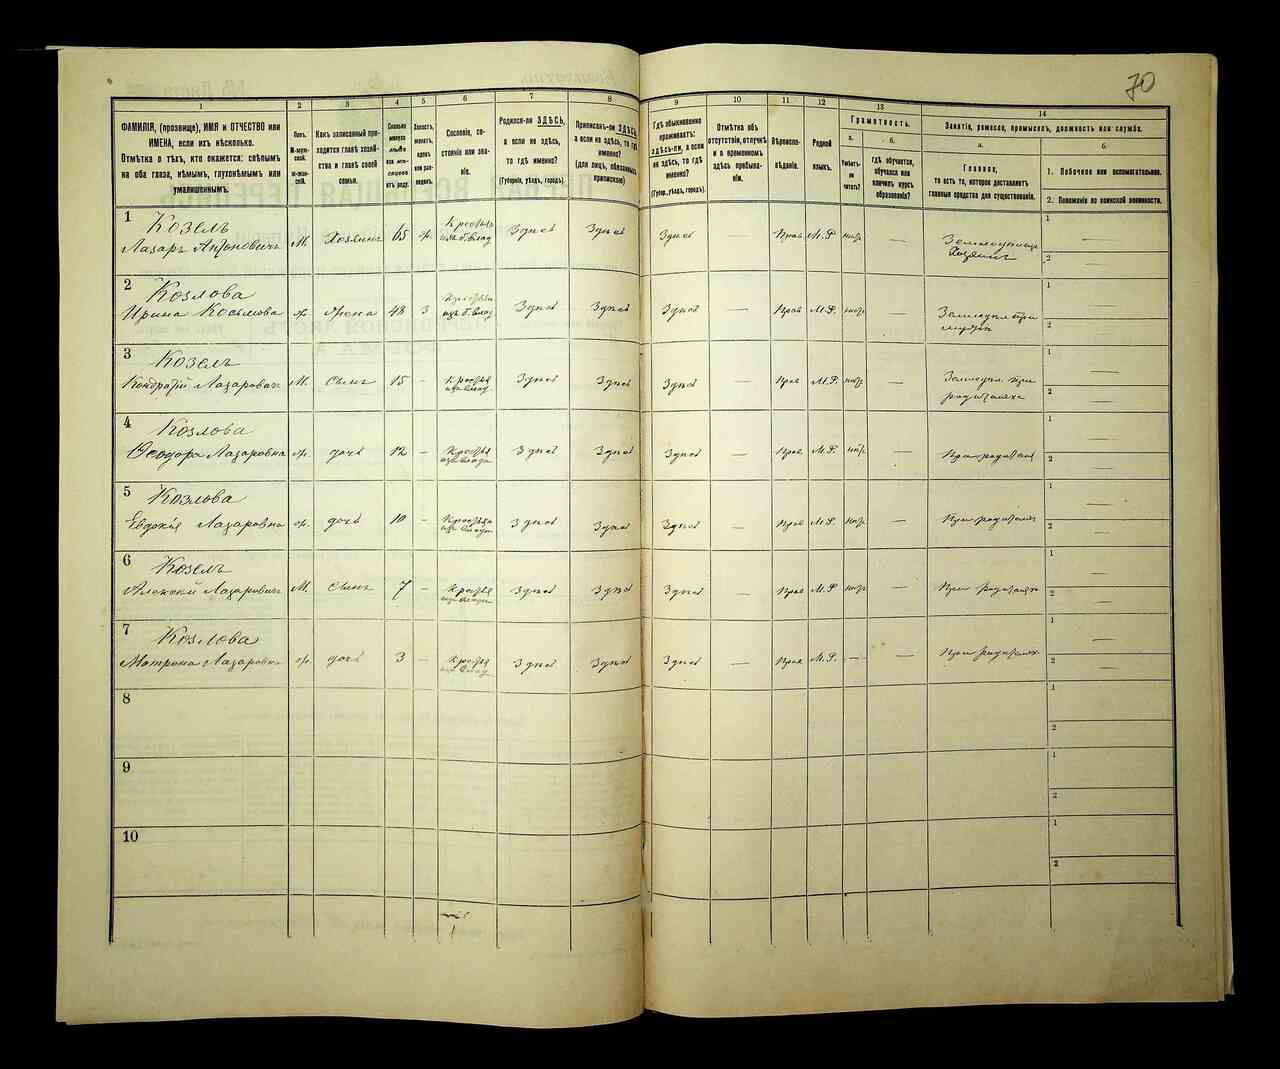 70
1
2
3
4
5
6
7
8
9
10
11
12
13
14
ФАМИЛІЯ, (прозвище), ИМЯ и ОТЧЕСТВО или
ИМЕНА, если ихъ нѣсколько.
Отмѣтка о тѣхъ, кто окажется: слѣпымъ
на оба глаза, нѣмымъ, глухонѣмымъ или
умалишеннымъ.
Полъ.
М-муж-
ской.
Ж-жен-
скій.
Какъ записанный при-
ходится главѣ хозяй-
ства и главѣ своей
семьи.
Сколько
минуло
лѣтъ
или мѣ-
сяцевъ
отъ роду.
Холостъ,
женатъ,
вдовъ
или раз-
веденъ.
Сословіе, со-
стояніе или зва-
ніе.
Родился-ли ЗДѢСЬ,
а если не здѣсь,
то гдѣ именно?
(Губернія, уѣздъ, городъ).
Приписанъ-ли ЗДѢСЬ,
а если не здѣсь, то гдѣ
именно?
(для лицъ, обязанныхъ
припискою)
Гдѣ обыкновенно
проживаетъ:
здѣсь-ли, а если
не здѣсь, то гдѣ
именно?
(Губер., уѣздъ, городъ).
Отмѣтка объ
отсутствіи, отлучкѣ
и о временномъ
здѣсь пребыва-
ніи.
Вѣроиспо-
вѣданіе.
Родной
языкъ.
Грамотность.
а.
Умѣетъ-
ли
читать?
б.
гдѣ обучается,
обучался или
кончилъ курсъ
образованія?
Занятіе, ремесло, промыселъ, должность или служба.
а.
Главное,
то есть то, которое доставляетъ
главныя средства для существованія.
б.
1. Побочное или вспомогательное.
2. Положеніе по воинской повинности.
1 Козелъ
Лазарь Антоновичъ М. Хозяинъ 65 ж. Крестьян изъ б. влад здѣсь здѣсь здѣсь — Прав М.Р. нѣтъ — Земледѣлецъ Хозяинъ 1 — 2 —
2 Козлова
Ирина Косьмова ж. жена 48 з Крестьян изъ б. влад здѣсь здѣсь здѣсь — Прав М.Р. нѣтъ — Земледѣл. при мужѣ 1 2
3 Козелъ
Кондратій Лазаревичъ М. сынъ 15 – Крестья изъ влад здѣсь здѣсь здѣсь — Прав М.Р. нѣтъ — Земледѣл. при родителяхъ 1 — 2 —
4 Козлова
Ѳеодора Лазаровна ж. дочь 12 – Крестья изъ влад здѣсь здѣсь здѣсь — Прав М.Р. нѣтъ При родителя 1 — 2 —
5 Козлова
Евдокія Лазаровна ж. дочь 10 – Крестья изъ влад здѣсь здѣсь здѣсь — Прав М.Р. нѣтъ — При родителях 1 — 2 —
6 Козелъ
Алексѣй Лазаревичъ М. сынъ 7 – Крестья изъ влад здѣсь здѣсь здѣсь — Прав М.Р. нѣтъ — При родителях 1 — 2 —
7 Козлова
Матрона Лазаровна ж. дочь 3 – Крестья изъ влад здѣсь здѣсь здѣсь — Прав М.Р. — — При родителях 1 — 2 —
8 1 2
9 1 2
10 1 2